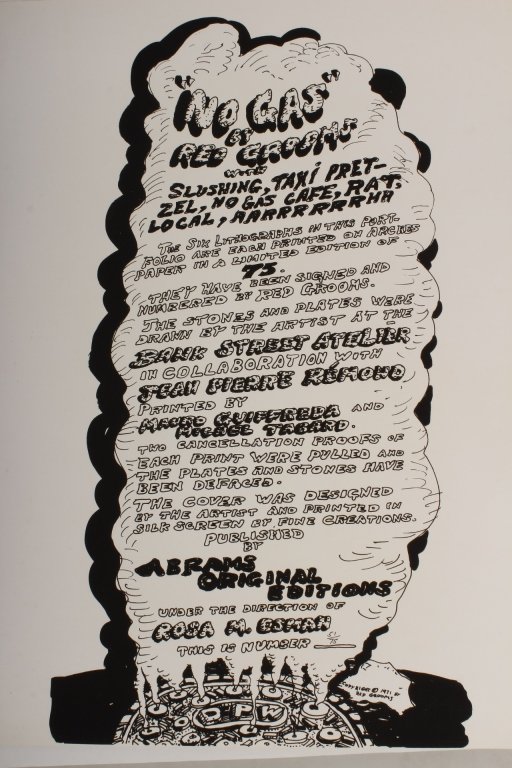 "NO GAS"
BY
RED GROOMS
WITH
SLUSHING, TAXI PRET-
ZEL, NO GAS CAFE, RAT,
LOCAL, AARRRRRRHH
THE SIX LITHOGRAPHS IN THIS PORT-
FOLIO ARE EACH PRINTED ON ARCHES
PAPER IN A LIMITED EDITION OF
75.
THEY HAVE BEEN SIGNED AND
NUMBERED BY RED GROOMS.
THE STONES AND PLATES WERE
DRAWN BY THE ARTIST AT THE
BANK STREET ATELIER
IN COLLABORATION WITH
JEAN PIERRE RÉMOND
PRINTED BY
MAURO GUIFFREDA AND
MICHEL TABARD.
TWO CANCELLATION PROOFS OF
EACH PRINT WERE PULLED AND
THE PLATES AND STONES HAVE
BEEN DEFACED.
THE COVER WAS DESIGNED
BY THE ARTIST AND PRINTED IN
SILK SCREEN BY FINE CREATIONS.
PUBLISHED
BY
ABRAMS
ORIGINAL
EDITIONS
UNDER THE DIRECTION OF
ROSA M. ESMAN
THIS IS NUMBER 51/75
COPYRIGHT © 1971 BY
RED GROOMS
DPW